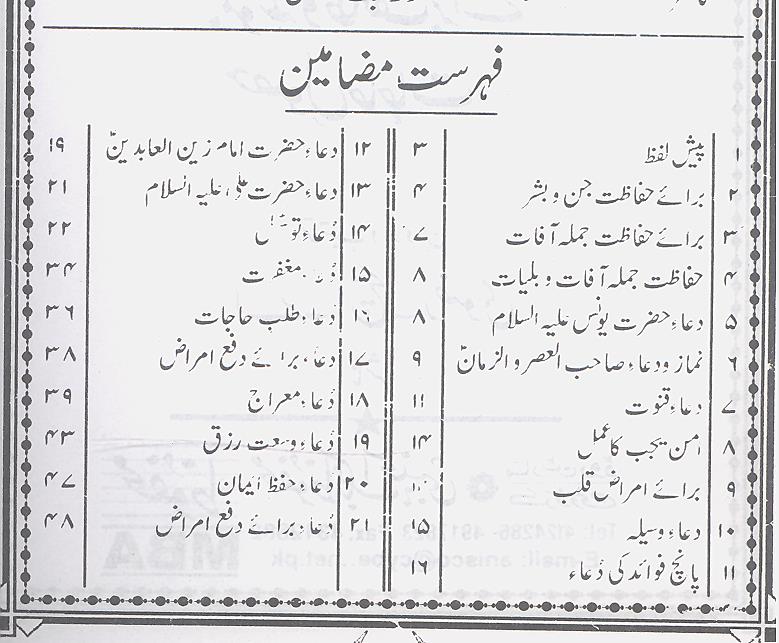 فہرست مضامین
۱ پیش لفظ ۳
۲ برائے حفاظت جن و بشر ۴
۳ برائے حفاظت جملہ آفات ۷
۴ حفاظت جملہ آفات و بلیات ۸
۵ دعاء حضرت یونس علیہ السلام ۸
۶ نماز و دعاء صاحب العصر و الزمانؑ ۹
۷ دعاء قنوت ۱۱
۸ امن یجیب کا عمل ۱۴
۹ برائے امراض قلب
۱۰ دعاء وسیلہ ۱۵
۱۱ پانچ فوائد کی دُعاء ۱۶
۱۲ دعاء حضرت امام زین العابدینؑ ۱۹
۱۳ دعاء حضرت علی علیہ السلام ۲۱
۱۴ دُعاء ۲۲
۱۵ مغفرت ۳۴
۱۶ دُعاء طلب حاجات ۳۶
۱۷ دعاء برائے دفع امراض ۳۸
۱۸ دُعاء معراج ۳۹
۱۹ دُعاء وسعت رزق ۴۳
۲۰ دعاء حفظ ایمان ۴۷
۲۱ دُعاء برائے دفع امراض ۴۸